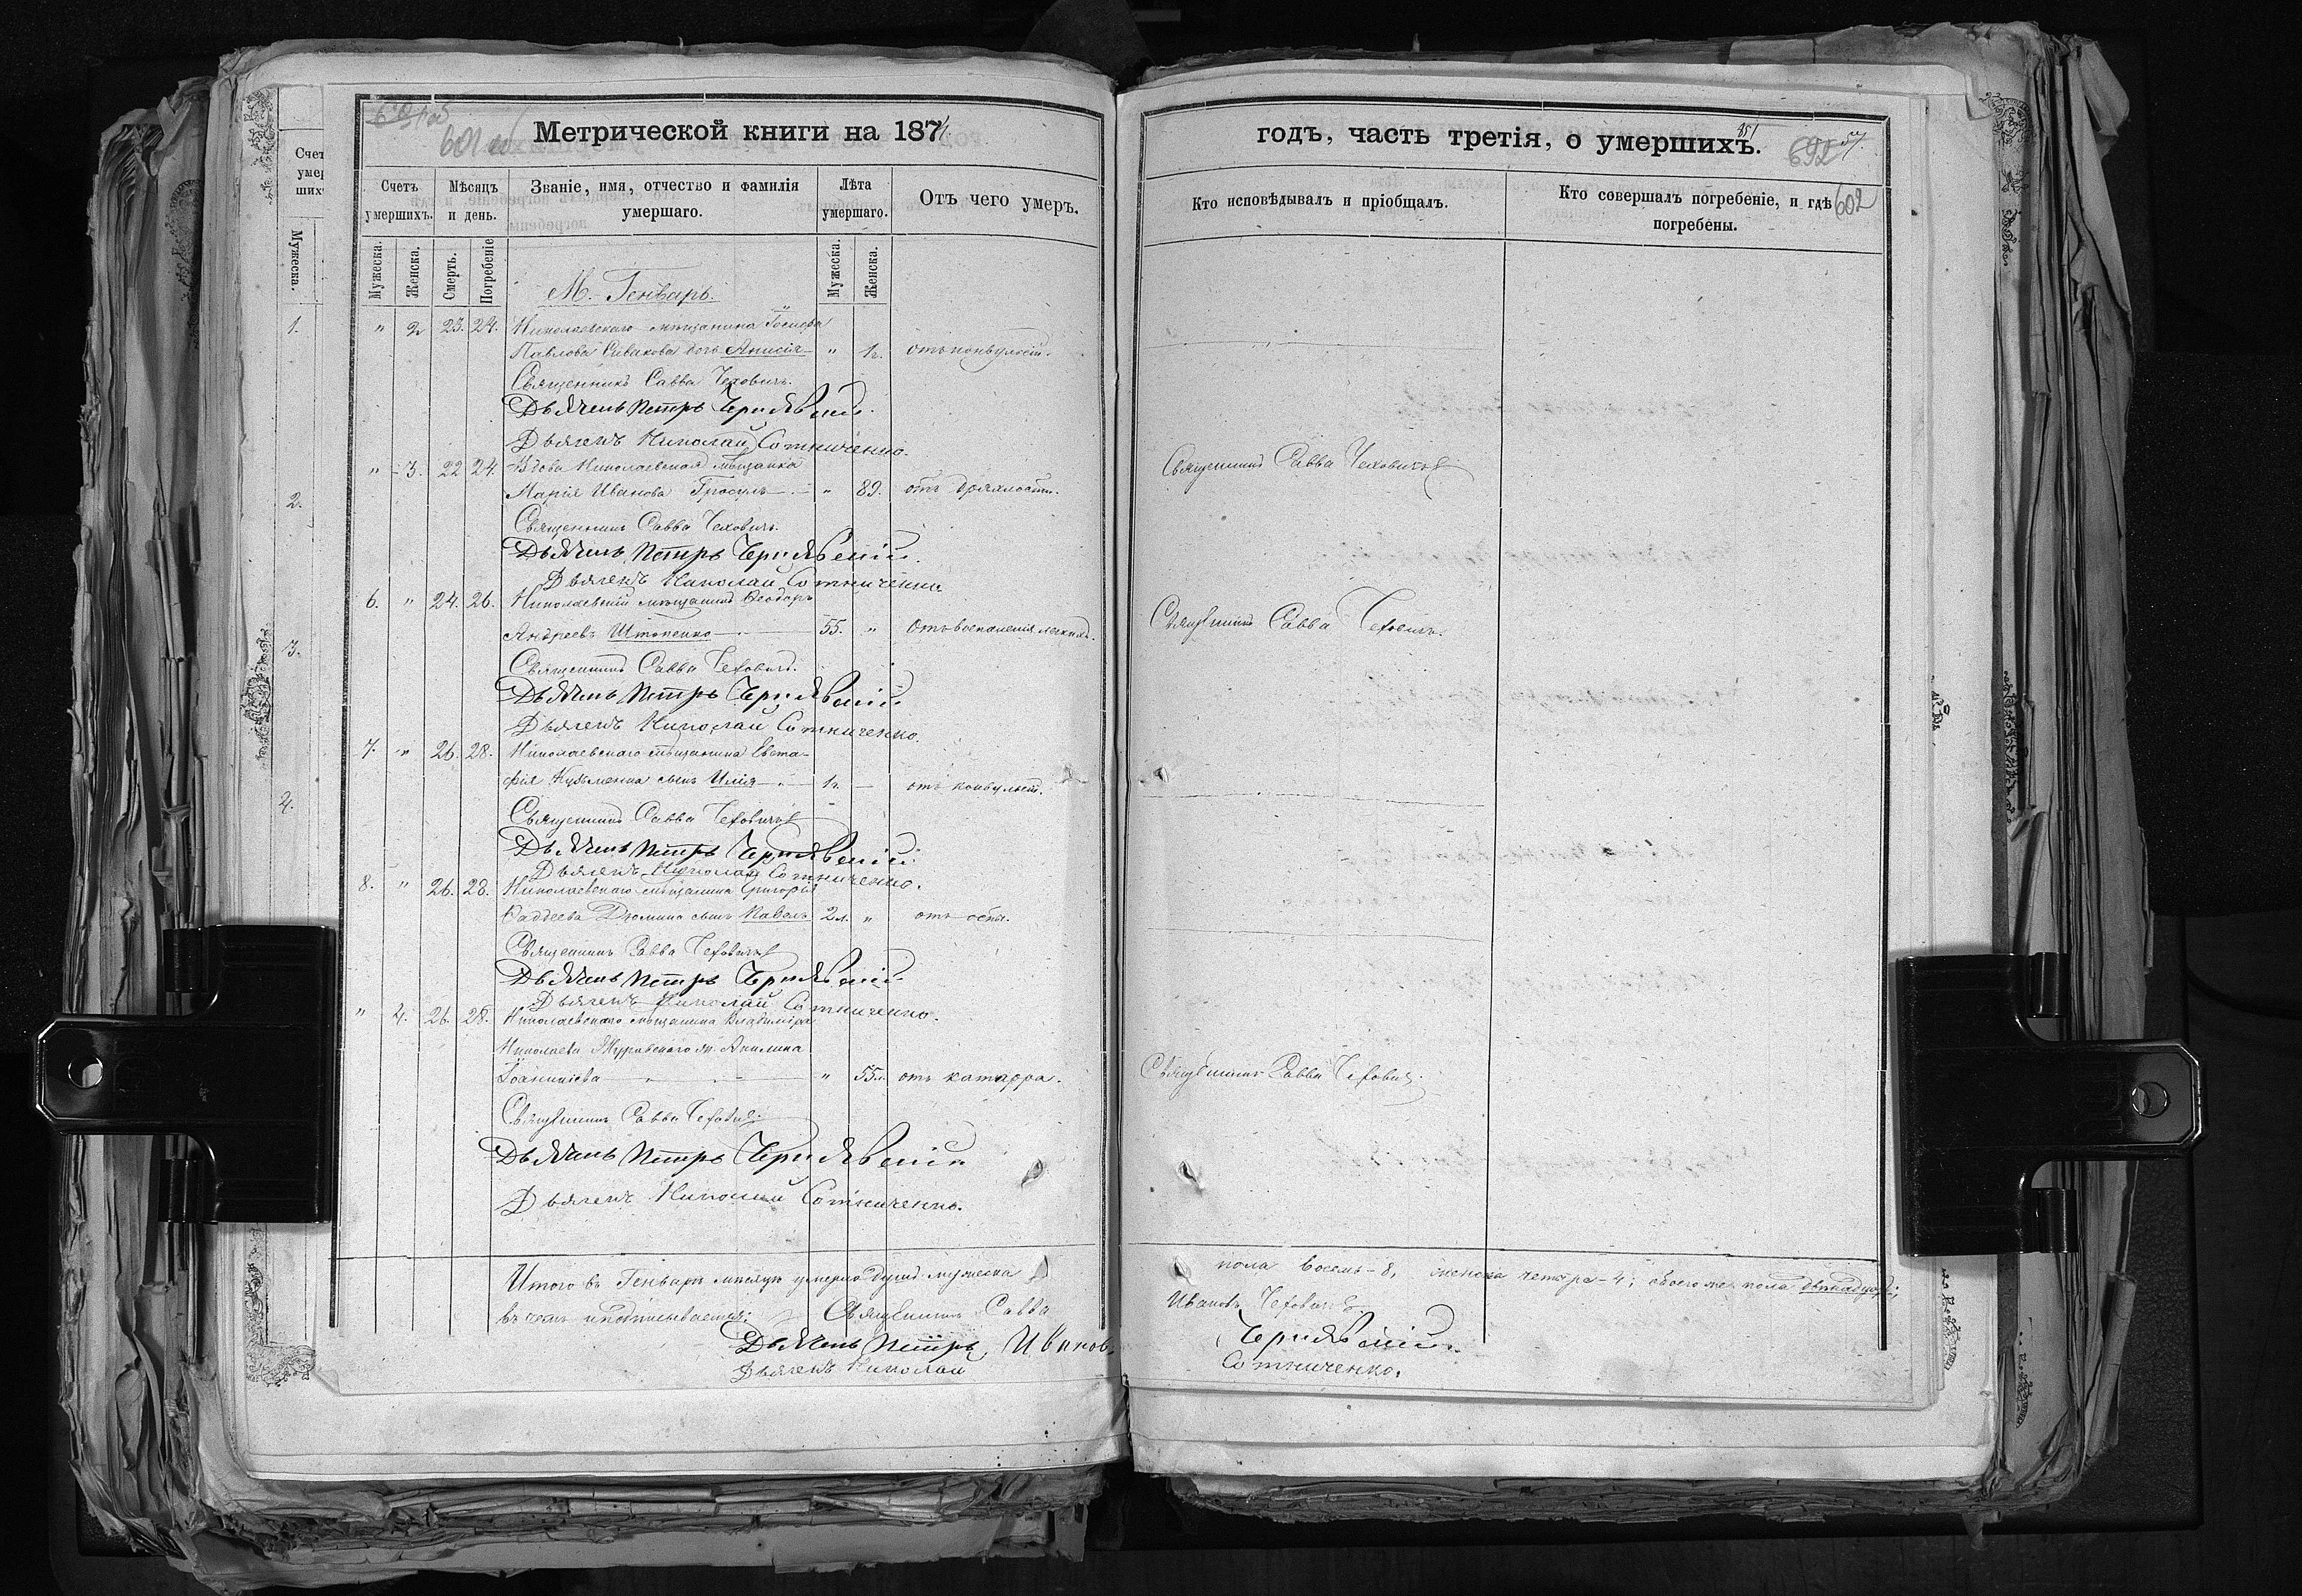 Метрической книги на 1874
601 об
Счетъ умершихъ.
Мѣсяцъ и день.
Званіе, имя, отчество и фамилія умершаго.
Лѣта умершаго.
Отъ чего умеръ.
Мужеска. Женска. Смерть. Погребеніе Мужеска. Женска.
М. Генварь.
" 2 23. 24. Николаевскаго мѣщанина Іосифа
Павлова Сивакова дочь Анисія " 1 г. отъ конвульсій.
Священникъ Савва Чеховичъ.
Дьячекъ Петръ Чернявскій.
Дьячекъ Николай Сотниченко.
" 3. 22 24. Вдова Николаевская мѣщанка
Марія Иванова " 89. отъ дряхлости.
Священникъ Савва Чеховичъ.
Дьячекъ Петръ Чернявскій.
Дьячекъ Николай Сотниченко
6. " 24. 26. Николаевскій мѣщанинъ Ѳеодоръ
Андреевъ Штопенко 55. " Отъ воспаленія легкихъ.
Священникъ Савва Чеховичъ.
Дьячекъ Петръ Чернявскій
Дьячекъ Николай Сотниченко.
7. " 26. 28. Николаевскаго мѣщанина Евста-
фія Кузьменка сынъ Илія 1 г. — отъ конвульсій.
Священникъ Савва Чеховичъ
Дьячекъ Петръ Чернявскій
Дьячекъ Николай Сотниченко.
8. " 26. 28. Николаевскаго мѣщанина Григорія
Ѳаддеева Дюмина сынъ Павелъ 2 л. " отъ оспы.
Священникъ Савва Чеховичъ
Дьячекъ Петръ Чернявскій
Дьячекъ Николай Сотниченко.
" 4. 26. 28. Николаевскаго мѣщанина Владиміра
Николаева Журавскаго ж. Акилина
Іоанникіева " 55 л. отъ катарра.
Священникъ Савва Чеховичъ
Дьячекъ Петръ Чернявскій
Дьячекъ Николай Сотниченко.
Итого въ Генварѣ мѣсяцѣ умерло душъ мужеска
въ чемъ и подписываемся: Священникъ Савва
Дьячекъ Петръ Иванов.
Дьячекъ Николай
годъ, часть третія, о умершихъ.
851
692
602
Кто исповѣдывалъ и пріобщалъ.
Кто совершалъ погребеніе, и гдѣ погребены.
Священникъ Савва Чеховичъ
Священникъ Савва Чеховичъ.
Священникъ Савва Чеховичъ.
пола восемь - 8, женска четыре - 4; обоего же пола двѣнадцать;
Ивановъ Чеховичъ
Чернявскій
Сотниченко.
Счет
умер
ших
Мужеска.
1.
2.
3.
4.